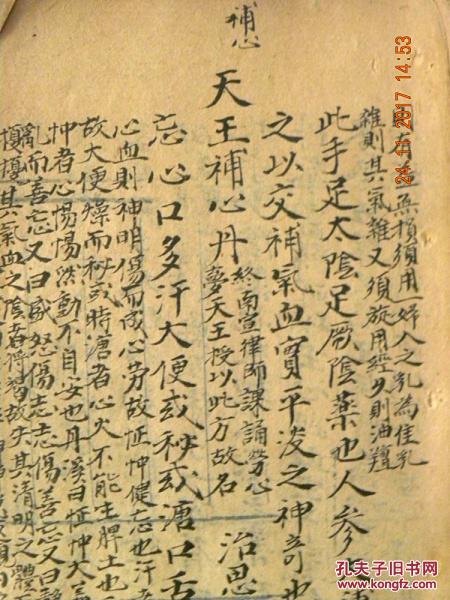 補心
無損須用一婦人之乳為佳乳
雜則其氣雜又須旋用經久則油羶
此手足太陰足厥陰藥也人參
之以交補氣血實平淡之神奇也
天王補心丹
終南宣律師課誦勞心
夢天王授以此方故名
治思
忘心口多汗大便或秘或溏口舌
心血則神明傷而成心勞故怔忡健忘也汗
故大便燥而秘或時溏者心火不能生脾土也
忡者心惕惕然動不自安也丹溪曰怔忡大
亂而善忘又曰盛怒傷志志傷善忘又曰
擾其氣血之陰者將智故失其清明之體
24-11-2017 14:53
孔夫子旧书网